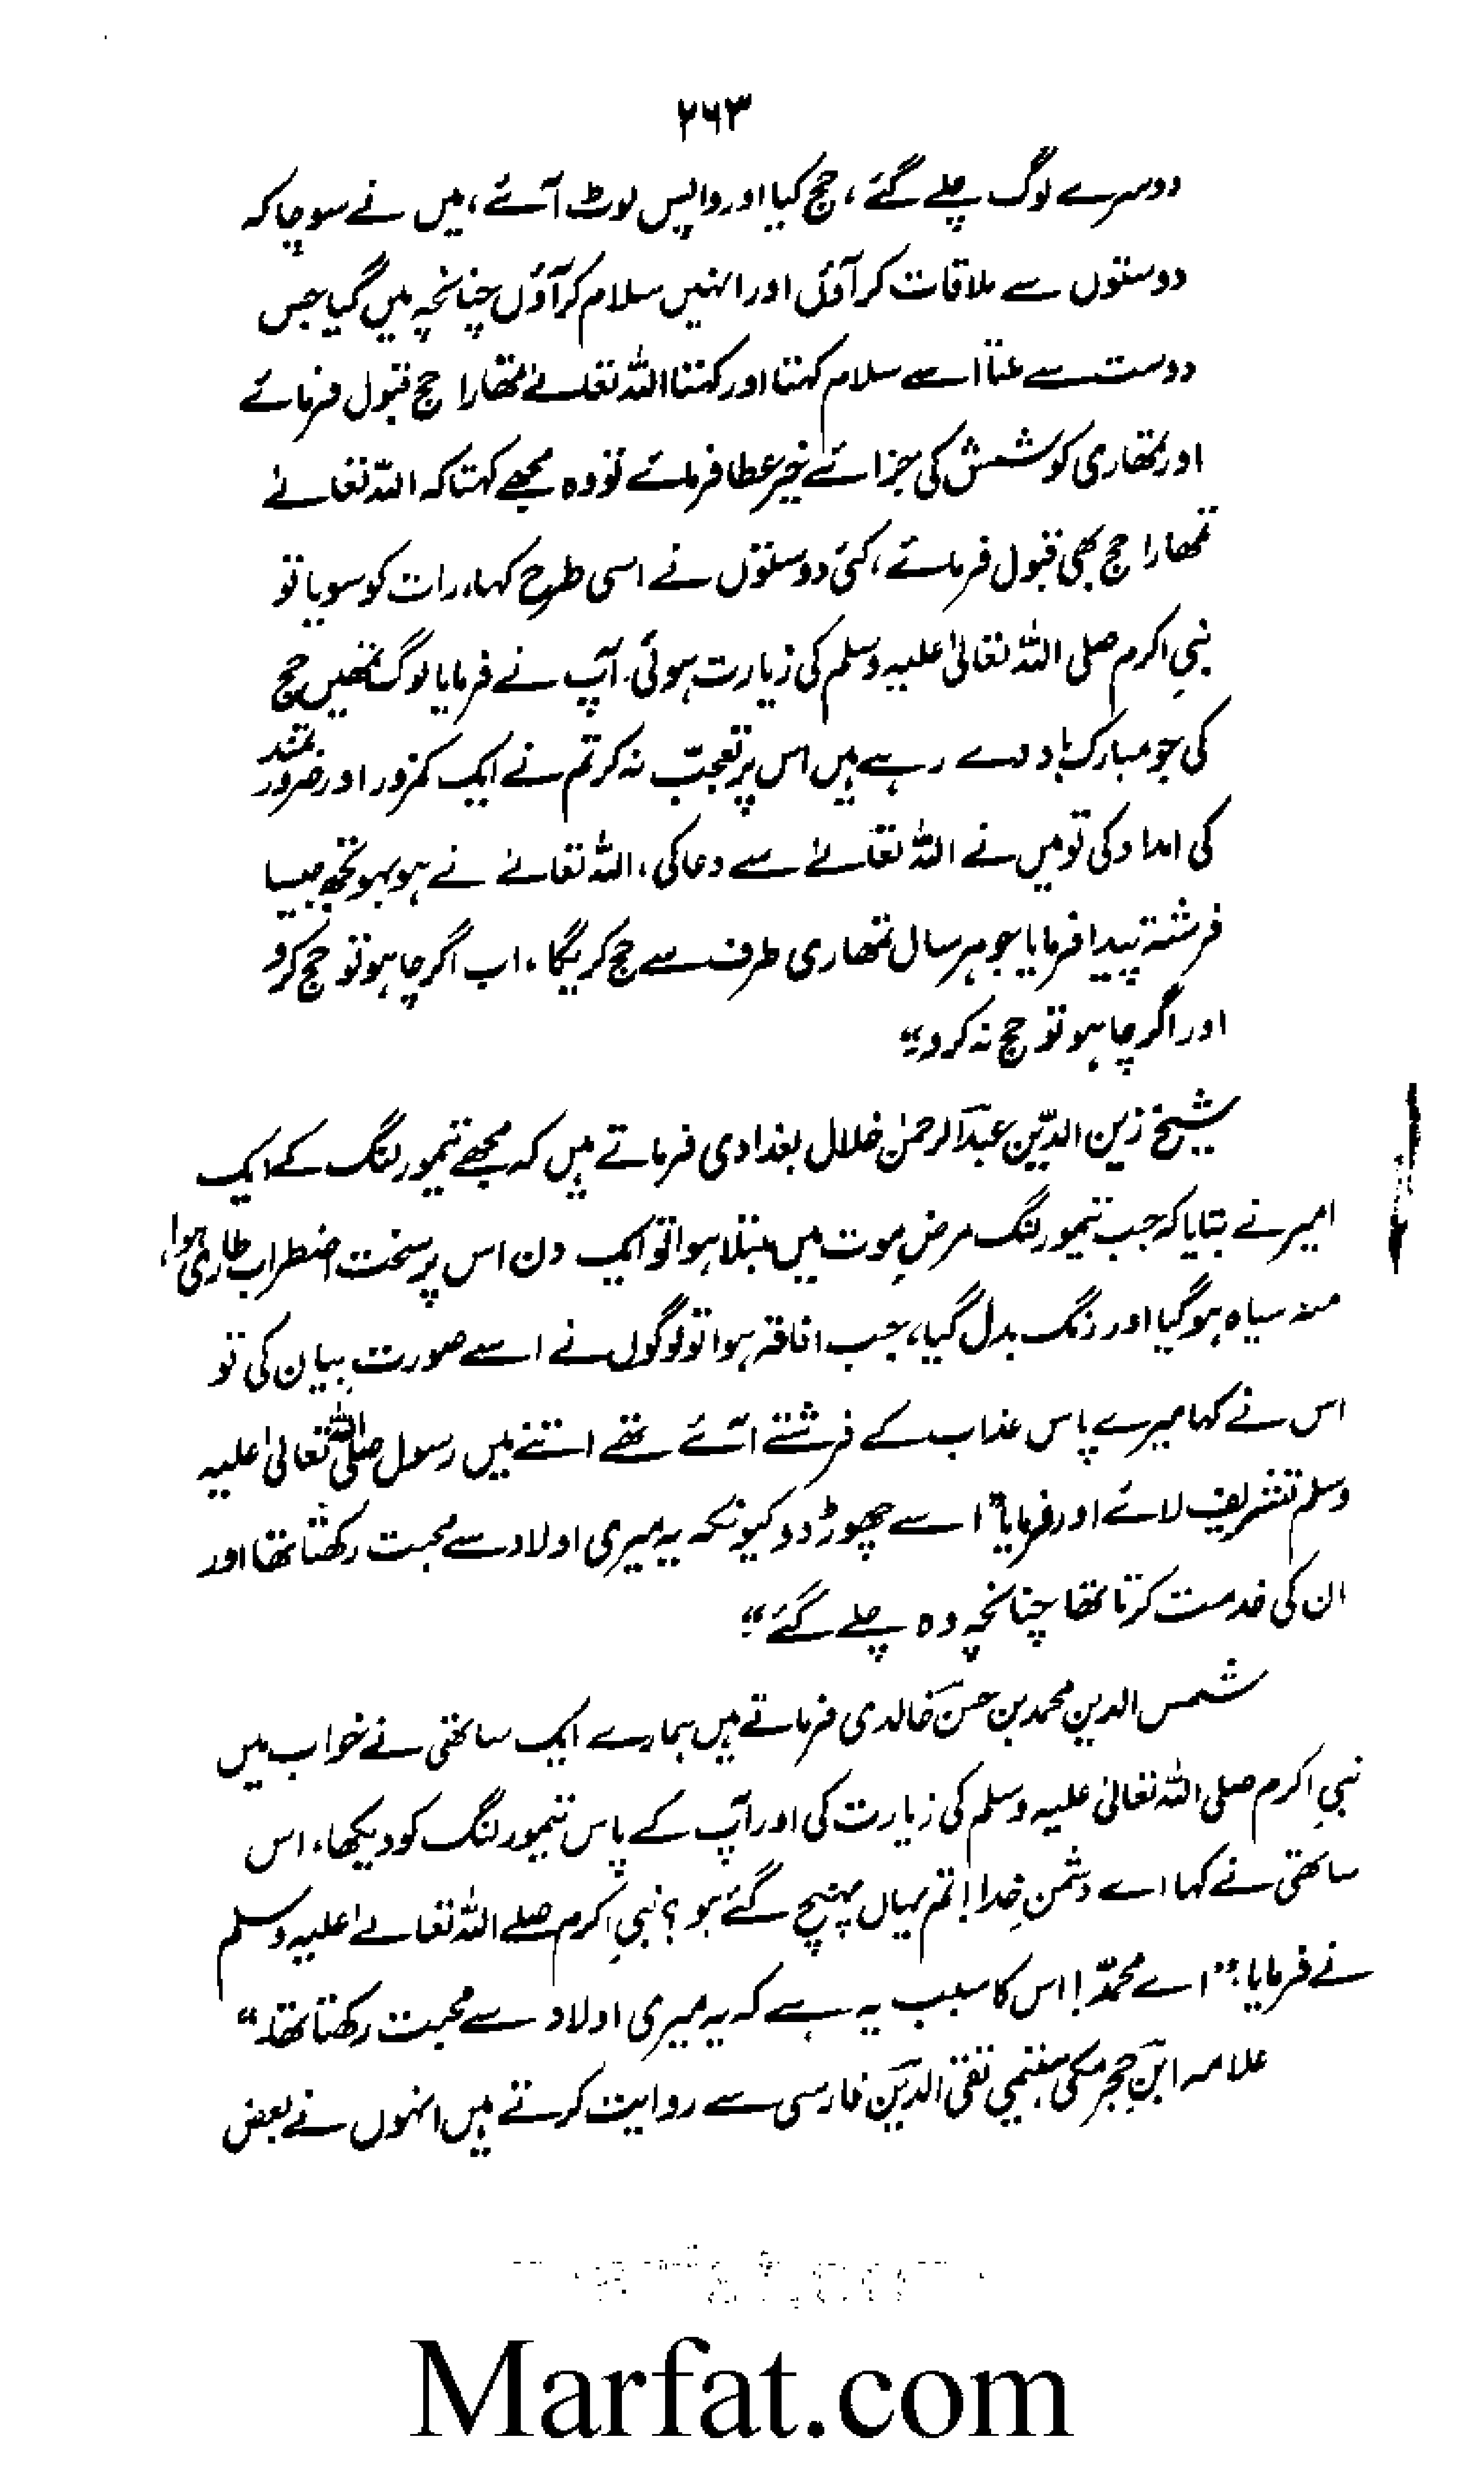 ۲۶۳
دوسرے لوگ چلے گئے، حج کیا اور واپس لوٹ آئے، میں نے سوچا کہ
دوستوں سے ملاقات کر آؤں اور انہیں سلام کر آؤں چنانچہ میں گیا جس
دوست سے ملتا اسے سلام کہتا اور کہتا اللہ تعالےٰ تمھارا حج قبول فرمائے
اور تمھاری کوشش کی جزائے خیر عطا فرمائے تو وہ مجھے کہتا کہ اللہ تعالےٰ
تمھارا حج بھی قبول فرمائے، کئی دوستوں نے اسی طرح کہا، رات کو سویا تو
نبیِ اکرم صلی اللہ تعالیٰ علیہ وسلم کی زیارت ہوئی۔ آپ نے فرمایا لوگ تمھیں حج
کی جو مبارکباد دے رہے ہیں اس پر تعجّب نہ کر تم نے ایک کمزور اور ضرورتمند
کی امداد کی تو میں نے اللہ تعالےٰ سے دعا کی، اللہ تعالےٰ نے ہو بہو تجھ جیسا
فرشتہ پیدا فرمایا جو ہر سال تمھاری طرف سے حج کریگا، اب اگر چاہو تو حج کرو
اور اگر چاہو تو حج نہ کرو۔"
شیخ زین الدّین عبدالرحمٰن خلال بغدادی فرماتے ہیں کہ مجھے تیمور لنگ کے ایک
امیر نے بتایا کہ جب تیمور لنگ مرضِ موت میں مبتلا ہوا تو ایک دن اس پر سخت اضطراب طاری ہوا،
منہ سیاہ ہو گیا اور رنگ بدل گیا، جب افاقہ ہوا تو لوگوں نے اسے صورت بیان کی تو
اس نے کہا میرے پاس عذاب کے فرشتے آئے تھے اتنے میں رسول صلی اللہ تعالیٰ علیہ
وسلم تشریف لائے اور فرمایا "اسے چھوڑ دو کیونکہ یہ میری اولاد سے محبت رکھتا تھا اور
ان کی خدمت کرتا تھا چنانچہ وہ چلے گئے۔"
شمس الدین محمد بن حسن خالدی فرماتے ہیں ہمارے ایک ساتھی نے خواب میں
نبیِ اکرم صلی اللہ تعالیٰ علیہ وسلم کی زیارت کی اور آپ کے پاس تیمور لنگ کو دیکھا، اس
ساتھی نے کہا اے دشمنِ خدا! تم یہاں پہنچ گئے ہو؟ نبیِ اکرم صلے اللہ تعالےٰ علیہ وسلم
نے فرمایا: "اے محمدّ! اس کا سبب یہ ہے کہ یہ میری اولاد سے محبت رکھتا تھا۔"
علامہ ابنِ حجر مکی ہیتمی تقی الدین فارسی سے روایت کرتے ہیں انہوں نے بعض
Marfat.com